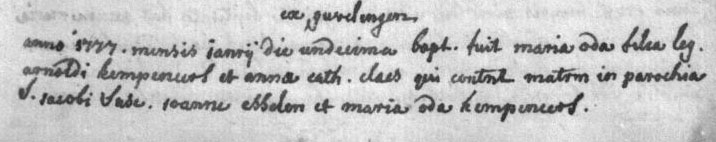 ex guvelingen
anno 1777. mensis ianrij die undecima bapt. fuit maria oda filia leg.
arnoldi kempeneers et annæ cath. claes qui contrxt matrm in parochia
S. iacobi susc. ioanne esselen et maria oda kempeneers.